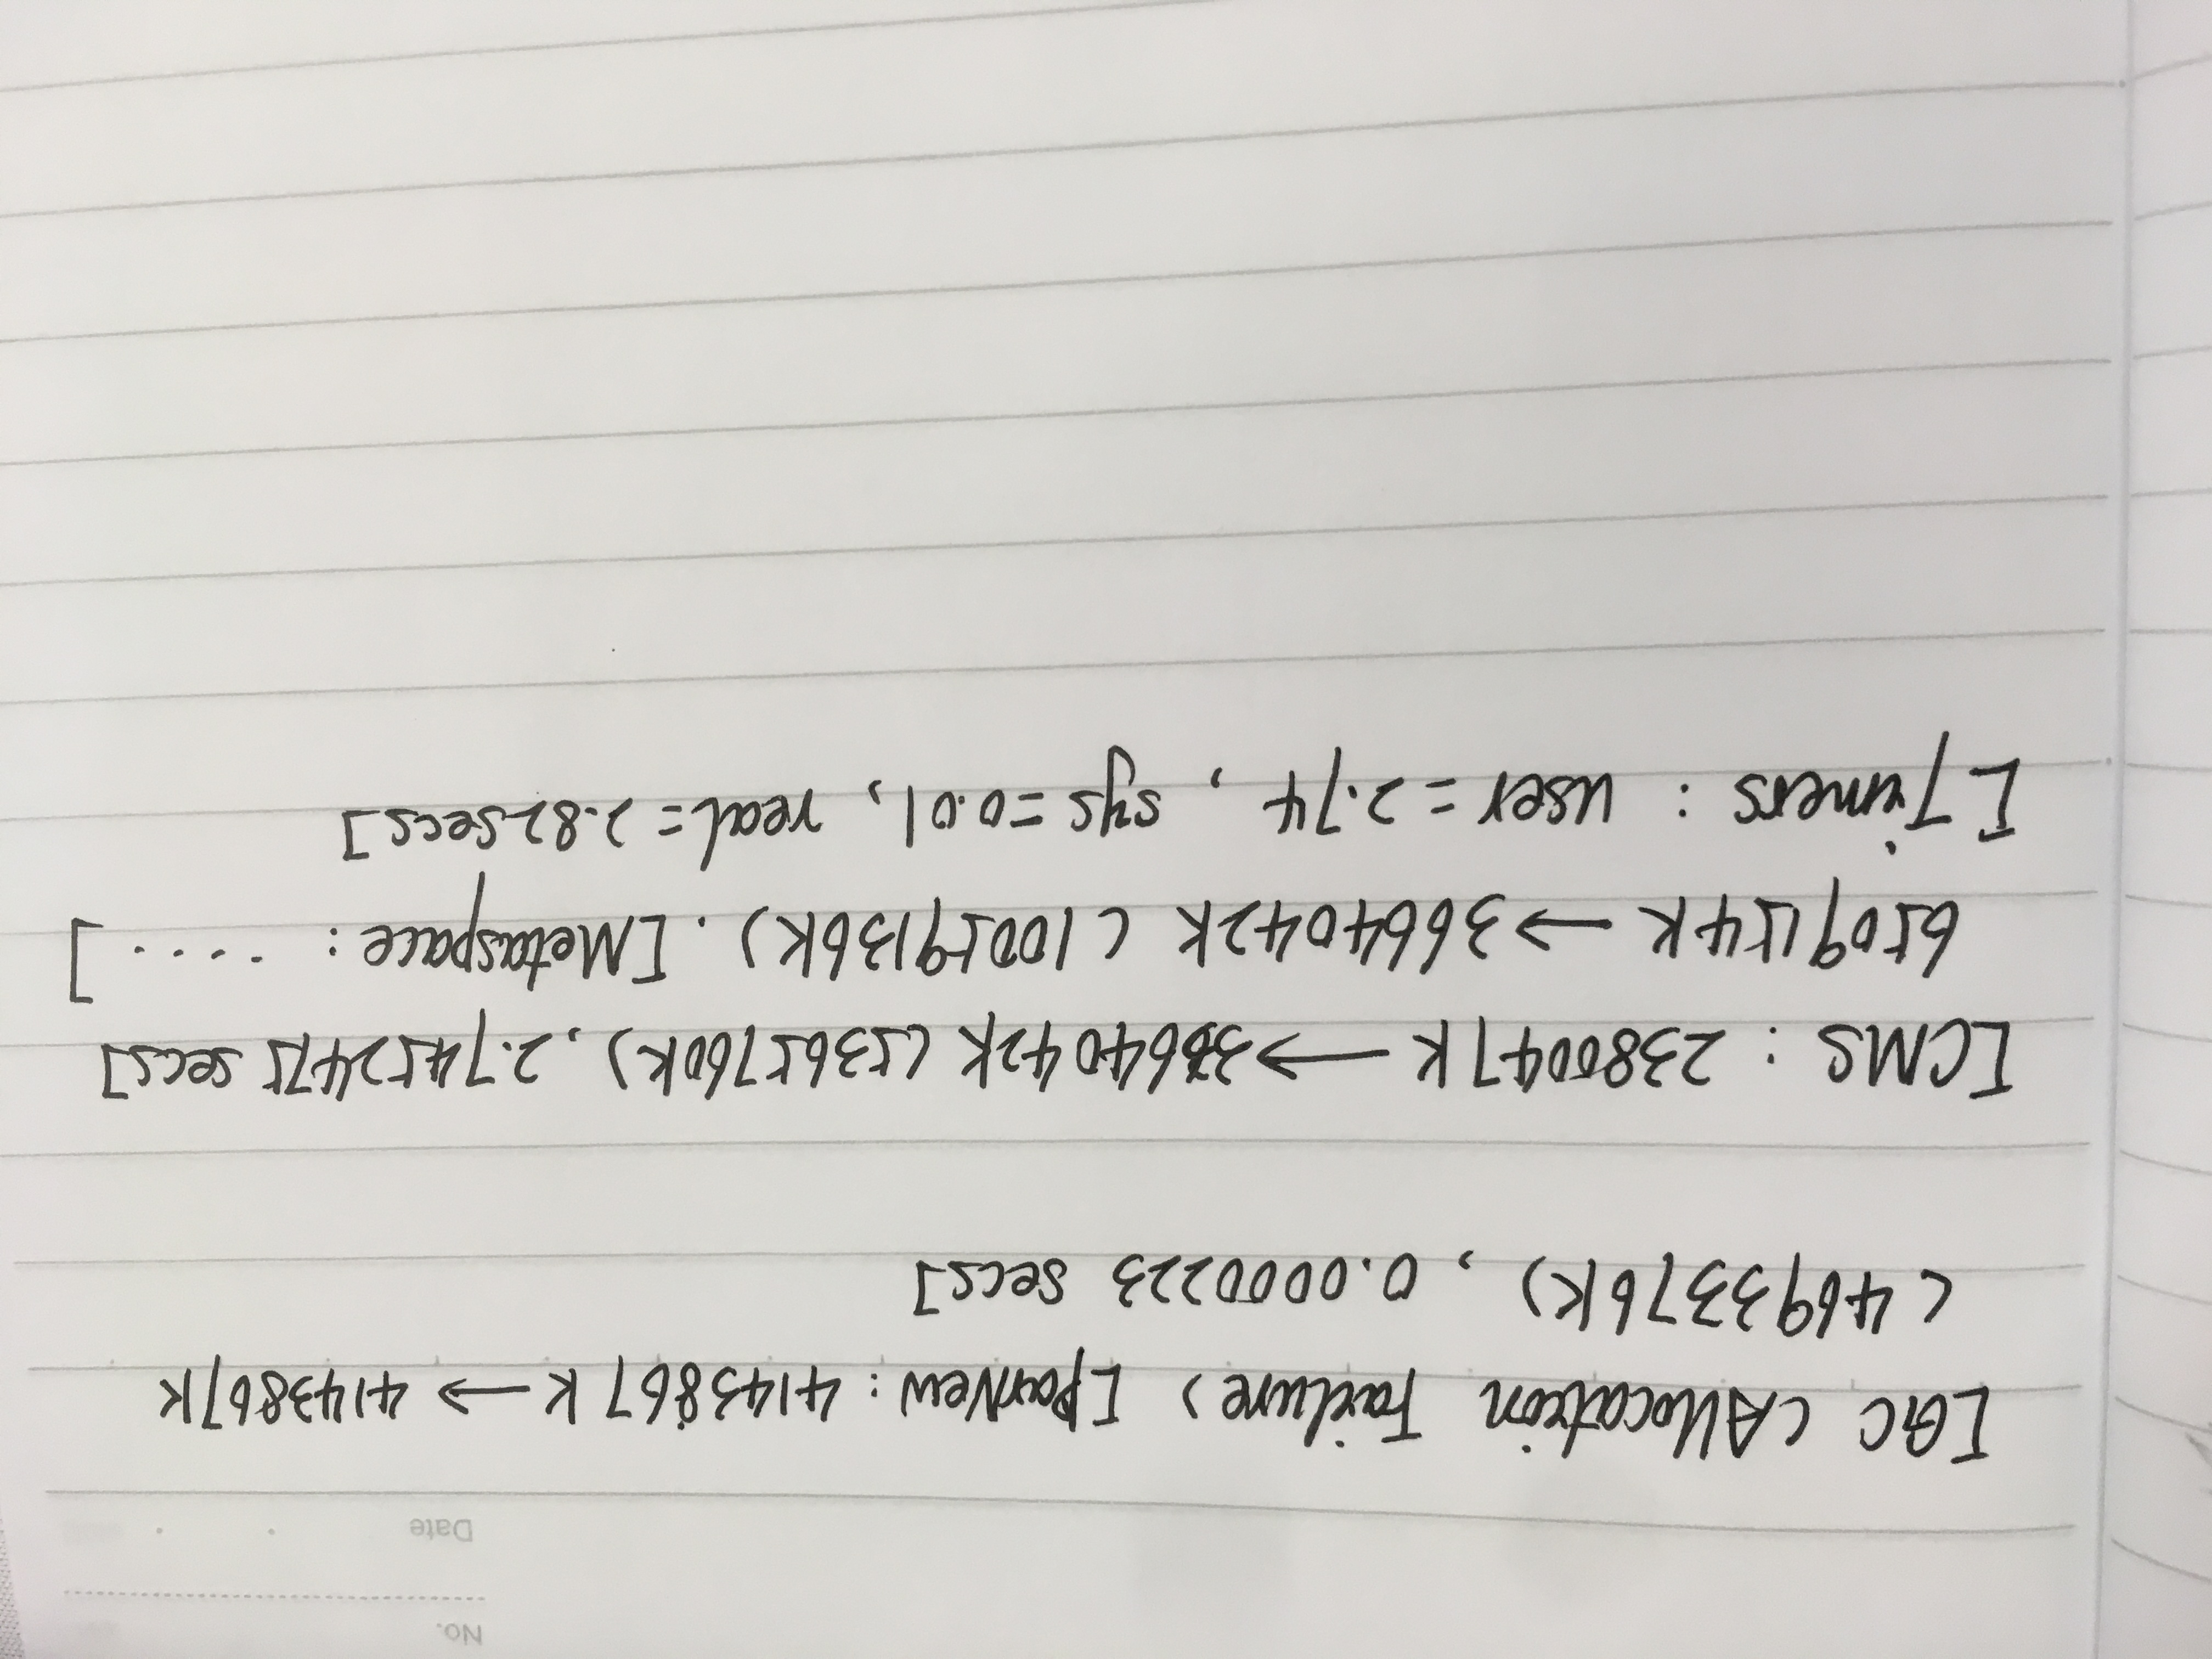 No.
Date
[GC (Allocation Failure) [ParNew: 4143867K → 4143867K
(4693376K), 0.0000223 secs]
[CMS: 2380047K → 3664042K (5365760K), 2.7452475 secs]
6509154K → 3664042K (10059136K). [Metaspace: ·····]
[Timers: user=2.74, sys=0.01, real=2.82secs]